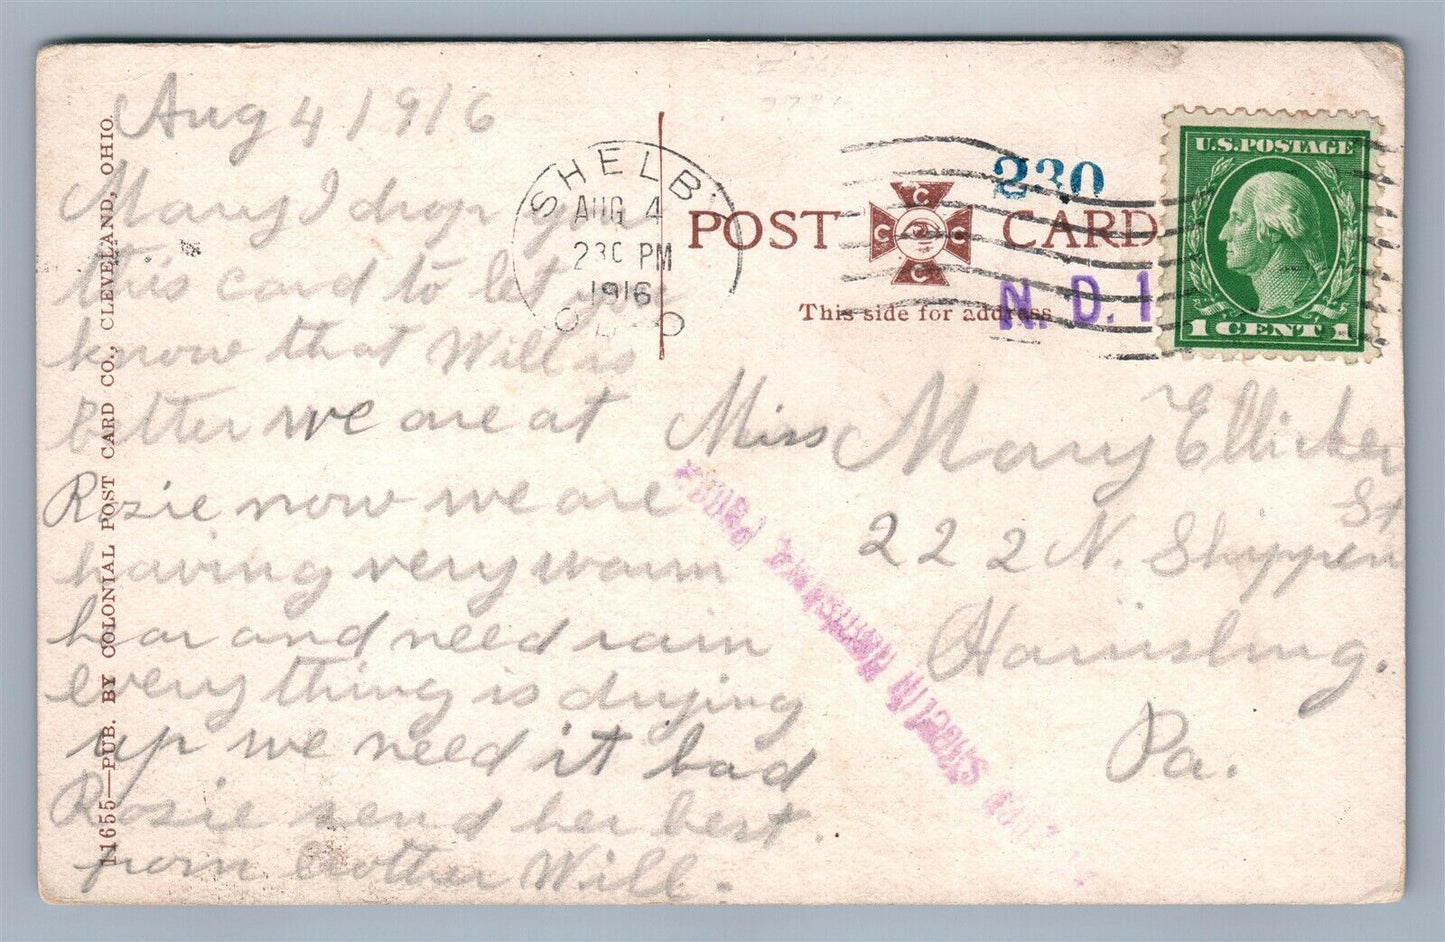 Aug 4 1916
Mary I drop you
this card to let you
know that Will is
better we are at
Rosie now we are
having very warm
hear and need rain
every thing is drying
up we need it bad
Rosie send her best.
from brother Will.
11655—PUB. BY COLONIAL POST CARD CO., CLEVELAND, OHIO.
SHELBY
AUG 4
230 PM
1916
POST CARD
C C C C
This side for address
230
N. D. 1
U.S. POSTAGE
1 CENT 1
Miss Mary Ellicker
St
222 N. Shippen
Harrisburg.
Pa.